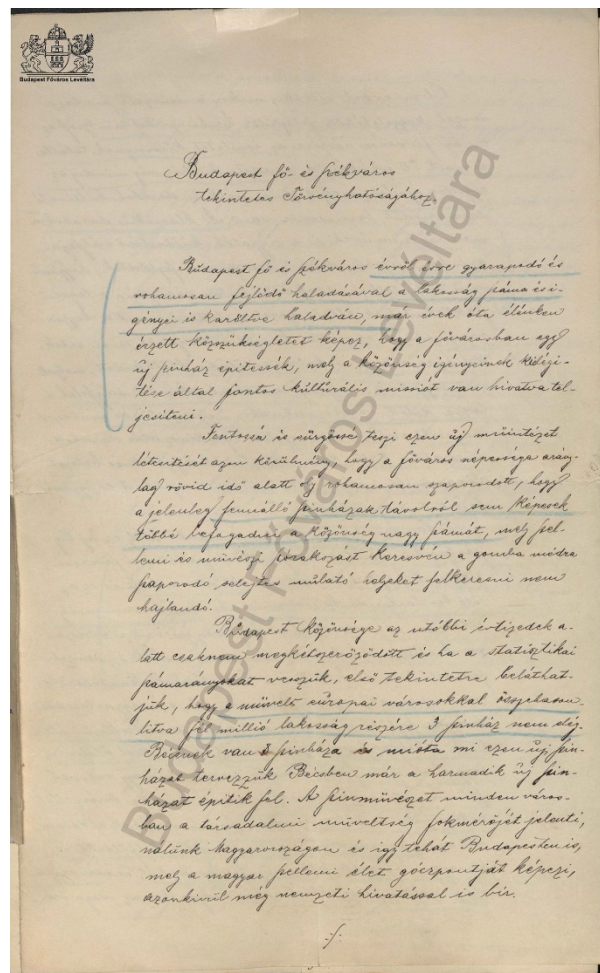 Budapest Főváros Levéltára
Budapest fő- és székváros
tekintetes Törvényhatóságához.
Budapest fő és székváros évről évre gyarapodó és
rohamosan fejlődő haladásával a lakosság száma és i-
gényei is karöltve haladván, már évek óta élénken
érzett közszükségletet képez, hogy a fővárosban egy
új szinház építessék, mely a közönség igényeinek kielégí-
tése által fontos kúltúrális missiót van hivatva tel-
jesiteni.
Fontossá és sürgőssé teszi ezen új műintézet
létesitését azon körülmény, hogy a főváros népessége arány-
lag rövid idő alatt oly rohamosan szaporodott, hogy
a jelenleg fennálló szinházak távolról sem képesek
többé befogadni a közönség nagy számát, mely szel-
lemi és művészi szórakozást keresvén a gomba módra
szaporodó selejtes mulató helyeket felkeresni nem
hajlandó.
Budapest közönsége az utóbbi évtizedek a-
latt csaknem megkétszereződött és ha a statisztikai
számarányokat vesszük, első tekintetre beláthat-
juk, hogy a művelt európai városokkal összehason-
litva fél millió lakosság részére 3 szinház nem elég.
Bécsnek van szinháza és mióta mi ezen új szin-
házat tervezzük Bécsben már a harmadik új szin-
házat épitik fel. A szinművészet minden város-
ban a társadalmi műveltség fokmérőjét jelenti,
nálunk Magyarországon és igy tehát Budapesten is,
mely a magyar szellemi élet góczpontját képezi,
azonkivül még nemzeti hivatással is bir.
·/·
Budapest Főváros Levéltára